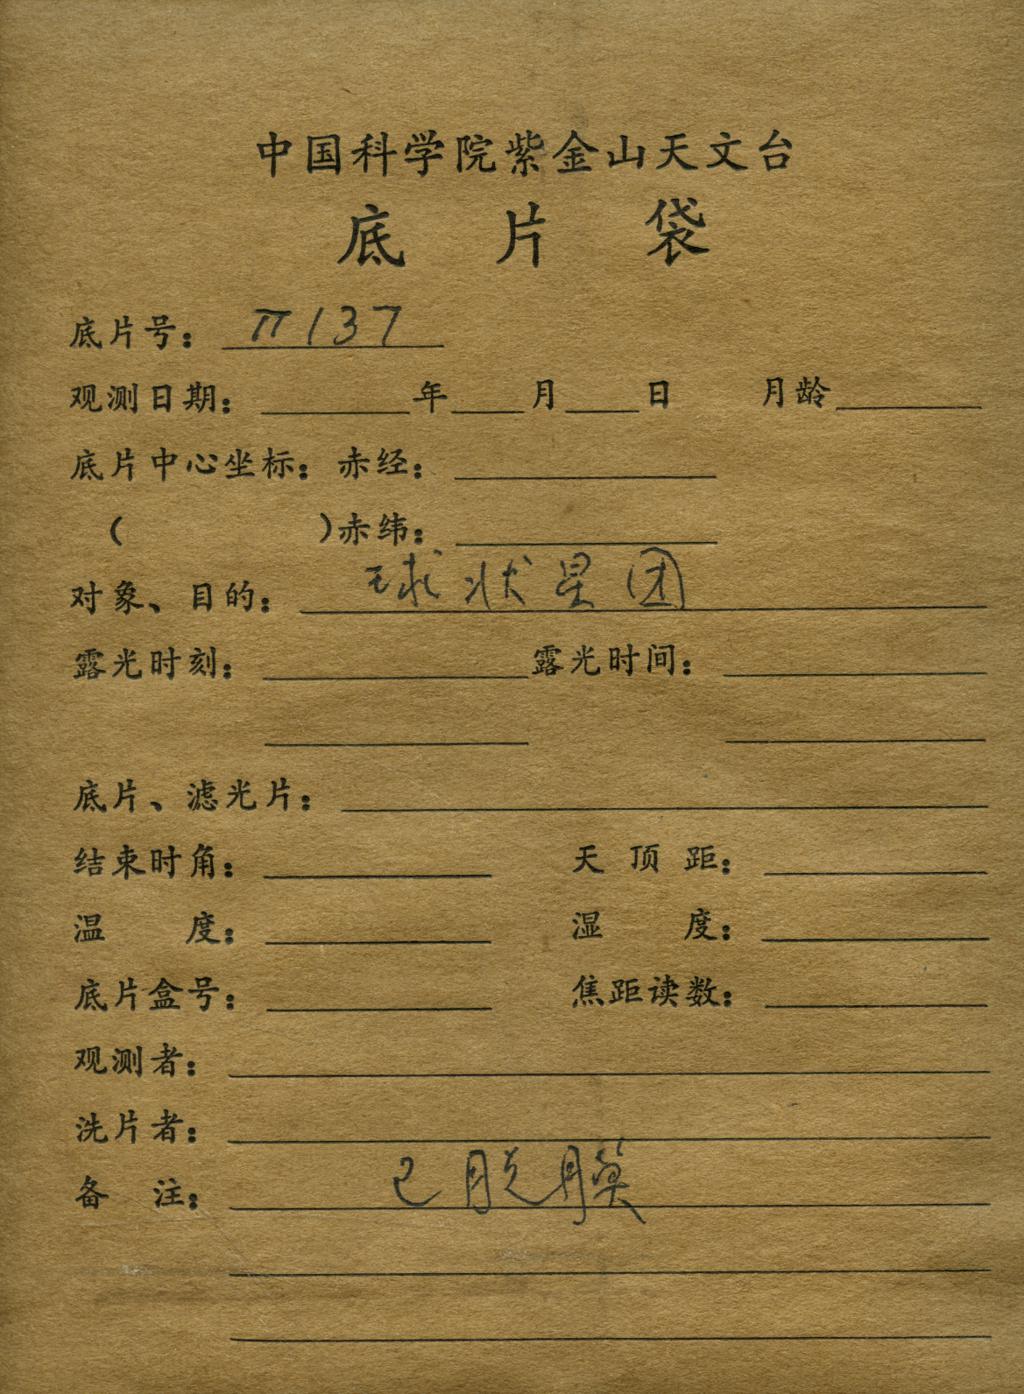 中国科学院紫金山天文台
底片袋
底片号：π137
观测日期：年月日 月龄
底片中心坐标：赤经：
（ ）赤纬：
对象、目的：球状星团
露光时刻： 露光时间：
底片、滤光片：
结束时角： 天顶距：
温度： 湿度：
底片盒号： 焦距读数：
观测者：
洗片者：
备注：已脱膜